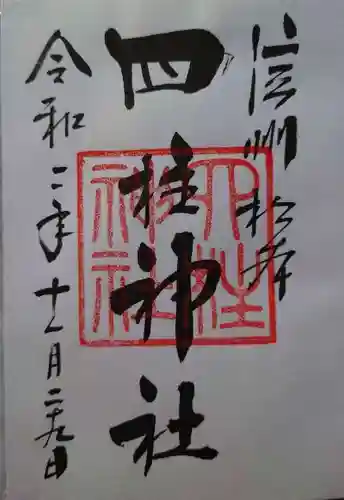 信州松本
四柱神社
四柱神社
令和二年十一月二十九日